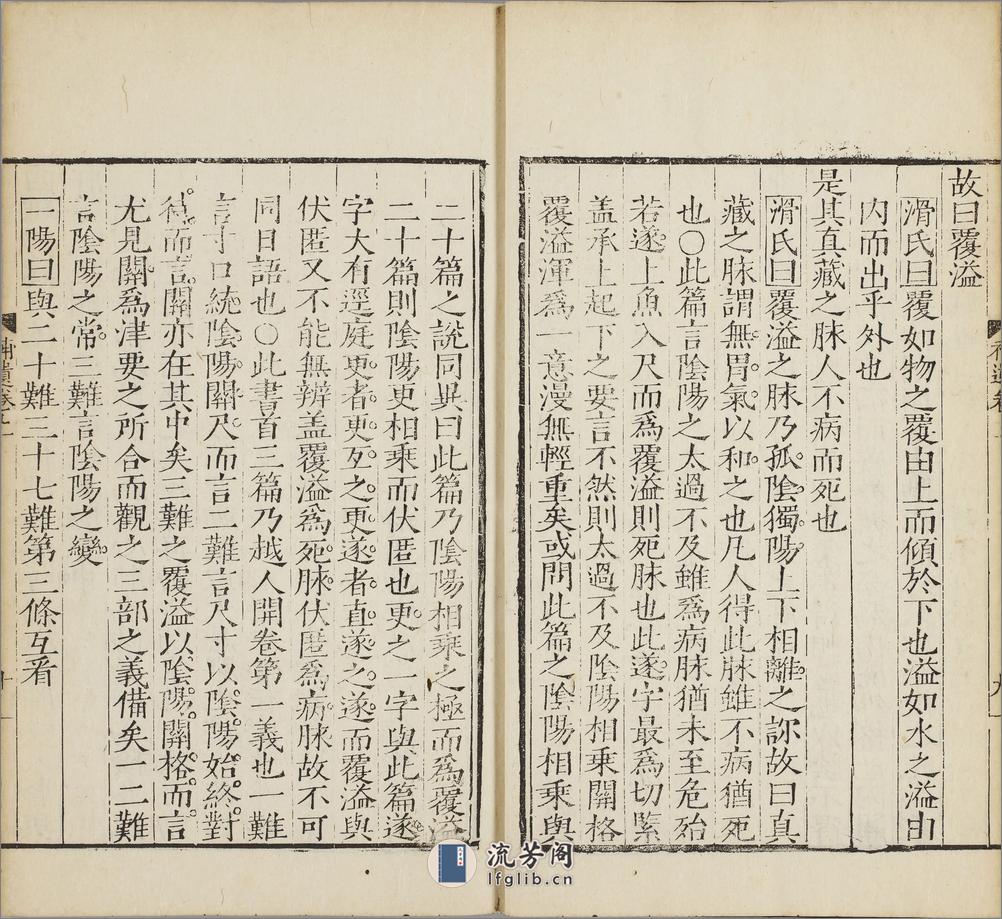 故曰覆溢
滑氏曰覆如物之覆由上而傾於下也溢如水之溢由
内而出乎外也
是其真藏之脉人不病而死也
滑氏曰覆溢之脉乃孤陰獨陽上下相離之䛊故曰真
藏之脉謂無胃氣以和之也凡人得此脉雖不病猶死
也〇此篇言陰陽之太過不及雖爲病脉猶未至危殆
若遂上魚入尺而爲覆溢則死脉也此遂字最爲切緊
盖承上起下之要言不然則太過不及陰陽相乘關格
覆溢渾爲一意漫無輕重矣或問此篇之陰陽相乘與
二十篇之說同異曰此篇乃陰陽相乘之極而爲覆溢
二十篇則陰陽更相乘而伏匿也更之一字與此篇遂
字大有逕庭更者更互之更遂者直遂之遂而覆溢與
伏匿又不能無辨盖覆溢爲死脉伏匿爲病脉故不可
同日語也〇此書首三篇乃越人開卷第一義也一難
言寸口統陰陽關尺而言二難言尺寸以陰陽始終對
待而言關亦在其中矣三難之覆溢以陰陽關格而言
尤見關爲津要之所合而觀之三部之義備矣一二難
言陰陽之常三難言陰陽之變
一陽曰與二十難三十七難第三條互看
流芳阁
lfglib.cn